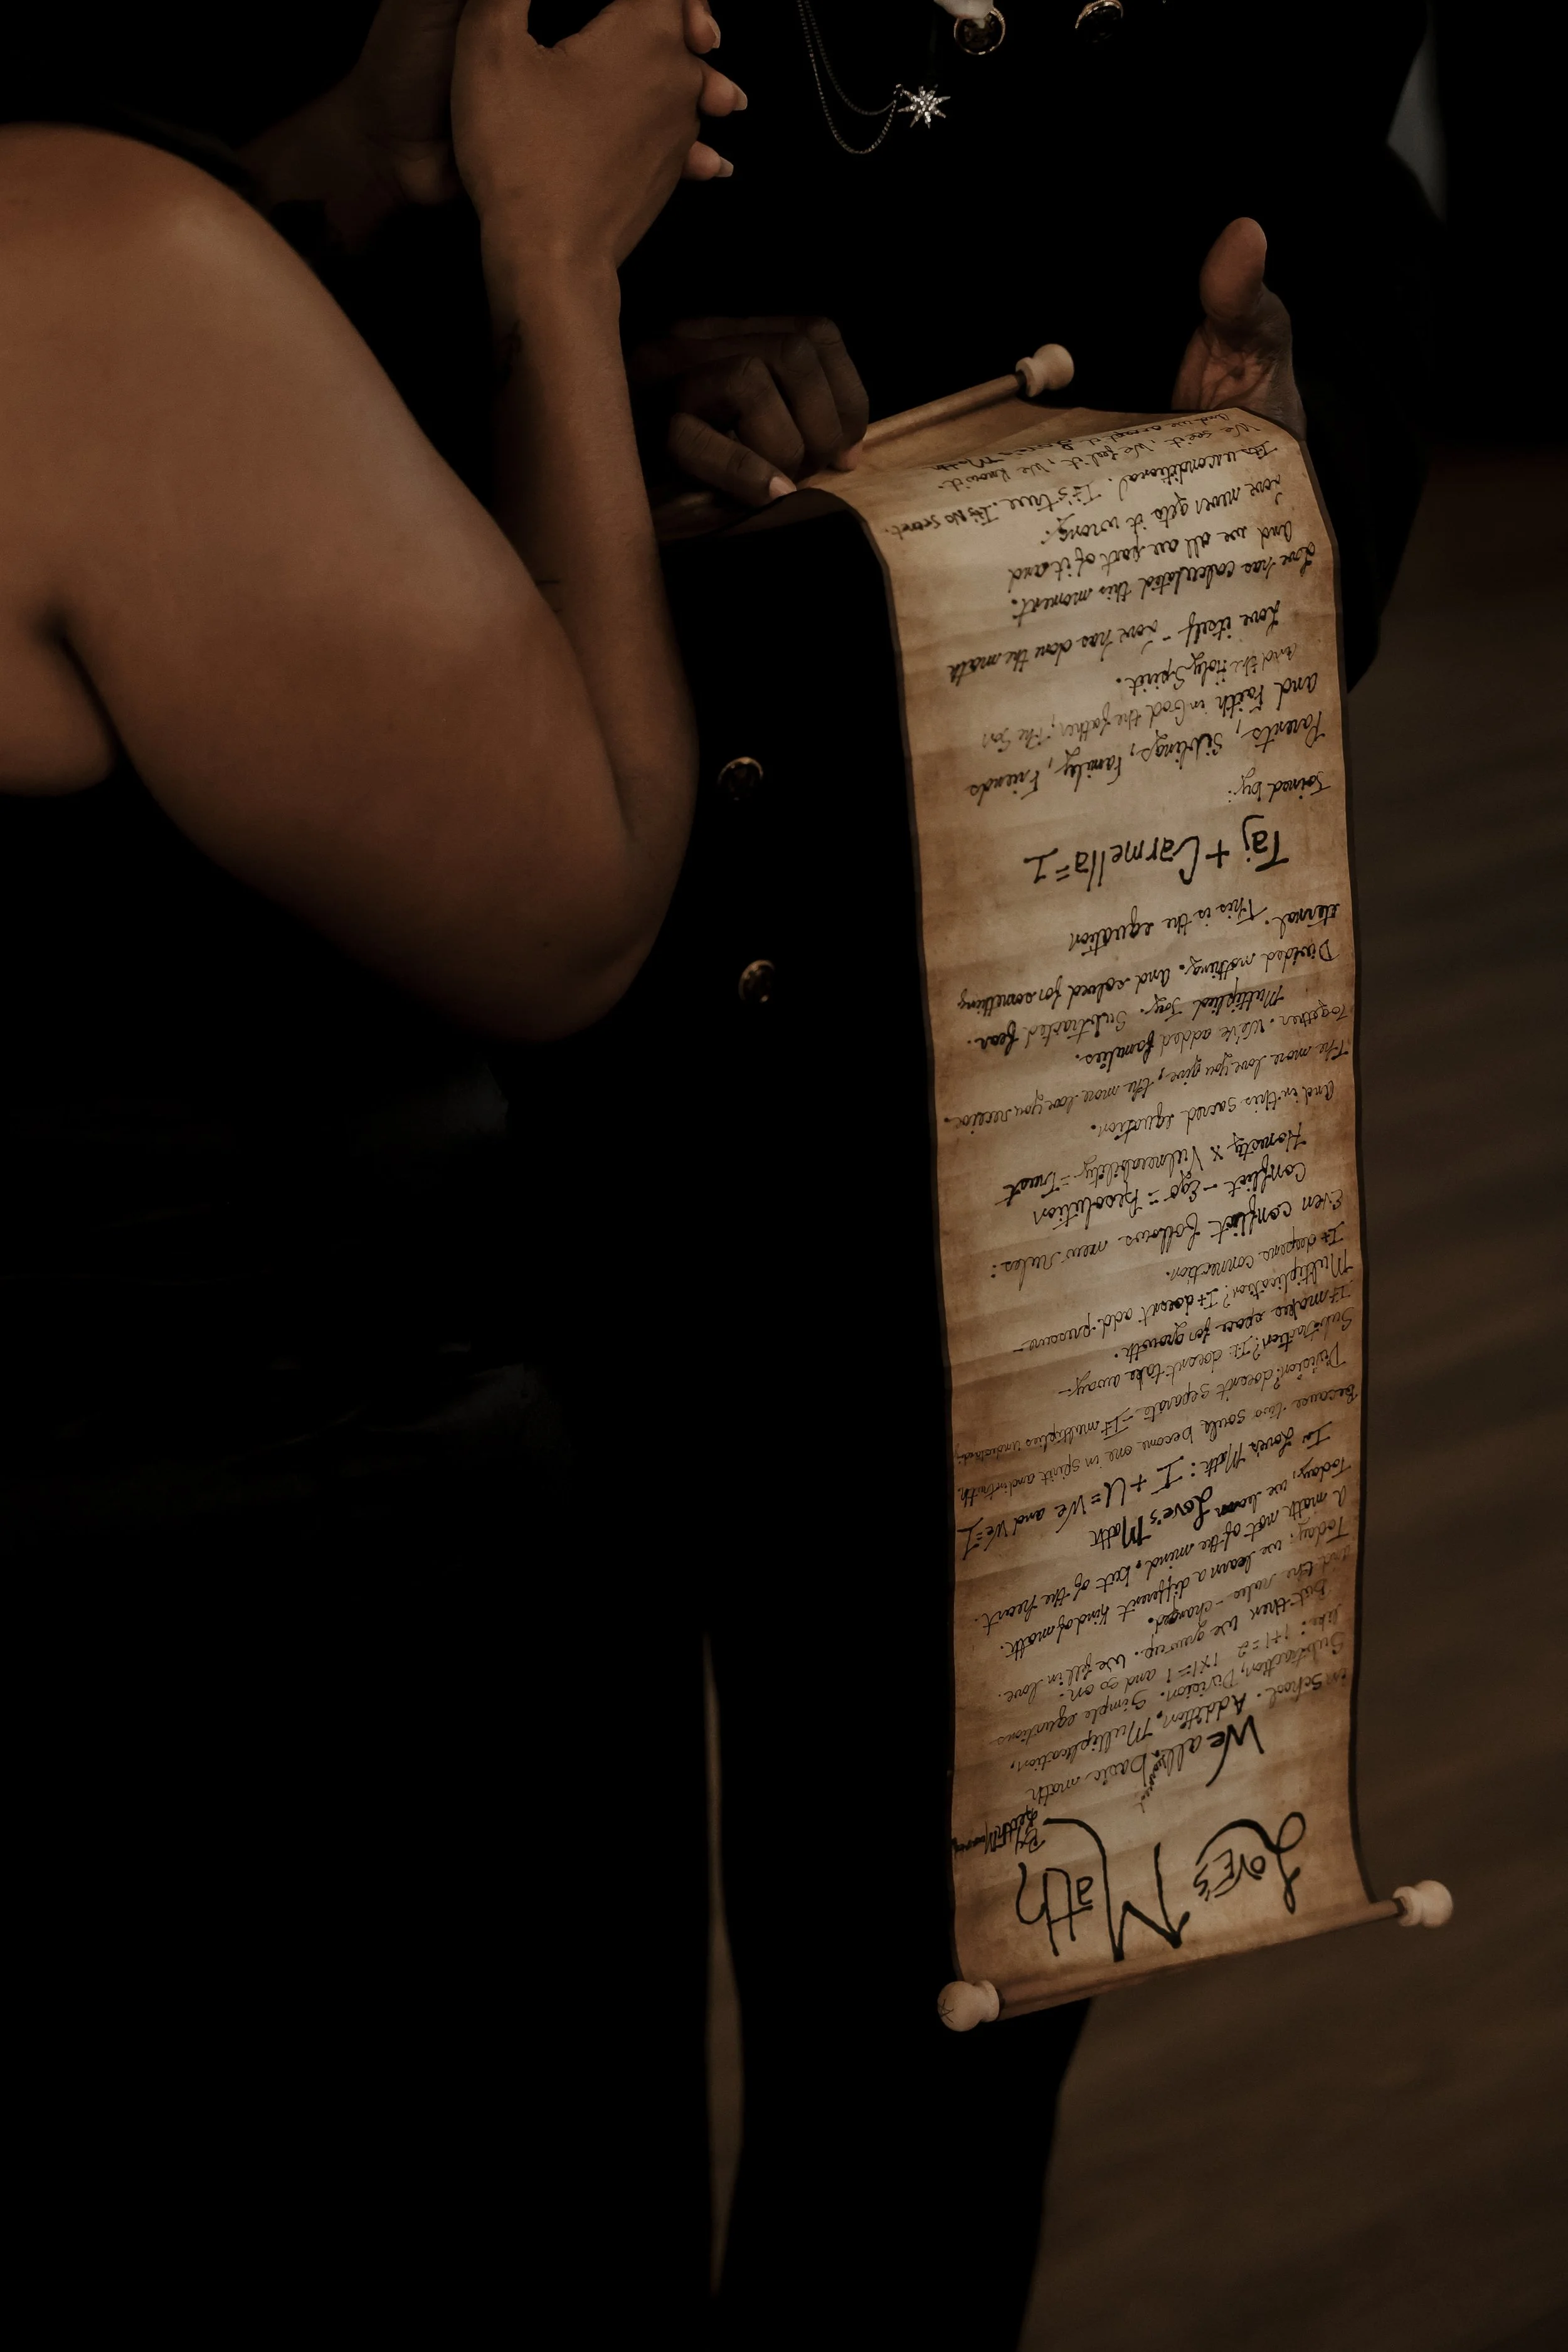 Love's
Math
By
We all learned basic math
in School. Addition, Multiplication,
Subtraction, Division. Simple equations
like: 1+1=2 1x1=1 and so on.
But then we grew up. We fell in love.
And the rules - changed.
Today, we learn a different kind of math.
A math not of the mind, but of the heart.
Today, we learn Love's Math
In Love's Math: I + U = We and We=1
Because two souls become one in spirit and in truth.
Division? doesn't separate - It multiplies understanding
Subtraction? It doesn't take away -
It makes space for growth.
Multiplication? It doesn't add pressure -
It deepens connection.
Even conflict follows new rules:
Conflict - Ego = Resolution
Honesty x Vulnerability = Trust
And in this sacred equation.
The more love you give, the more love you receive.
Together. We've added families.
Multiplied Joy. Subtracted fear.
Divided nothing. And solved for something
eternal. This is the equation
Taj + Carmella = 1
Joined by:
Parents, Siblings, Family, Friends
and Faith in God the father, The Son
and the Holy Spirit.
Love itself - Love has done the math
Love has calculated this moment.
And we all are part of it and
Love never gets it wrong.
Its unconditional. It's true. Its No secret.
We see it, We feel it, We know it.
And we accept it Love's Math